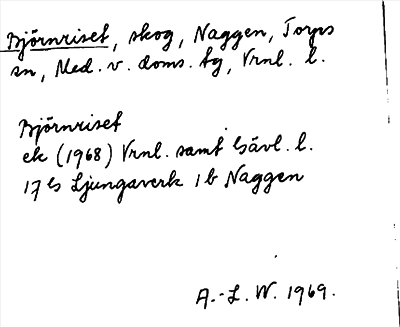 Björnriset, skog, Naggen, Torps
sn, Med. v. doms. tg, Vrnl. l.
Björnriset
ek (1968) Vrnl. samt Gävl. l.
17 G Ljungaverk 1 b Naggen
A.-L. W. 1969.